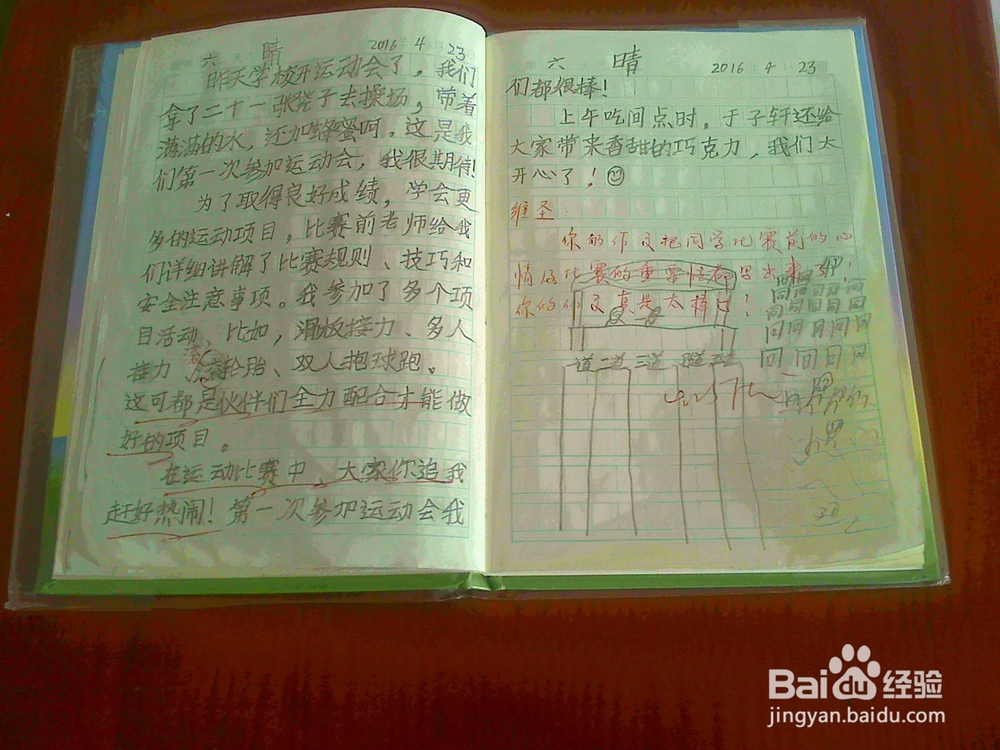 六 晴 2016 4 23
昨天学校开运动会了。我们
拿了二十一张凳子去操场，带着
满满的水，还加蜂蜜呵。这是我
们第一次参加运动会，我很期待！
为了取得良好成绩，学会更
多的运动项目，比赛前老师给我
们详细讲解了比赛规则、技巧和
安全注意事项。我参加了多个项
目活动，比如，滑板接力、多人
接力 滚轮胎、双人抱球跑。
这可都是伙伴们全力配合才能做
好的项目。
在运动比赛中，大家你追我
赶好热闹！第一次参加运动会我
六 晴 2016 4 23
们都很棒！
上午吃间点时，于子轩还给
大家带来香甜的巧克力，我们太
开心了！
继圣：
你的作文把同学比赛前的心
情及比赛的重要性都写出来啊！
你的作文真是太棒了！
道二道三道
Baidu经验
jingyan.baidu.com